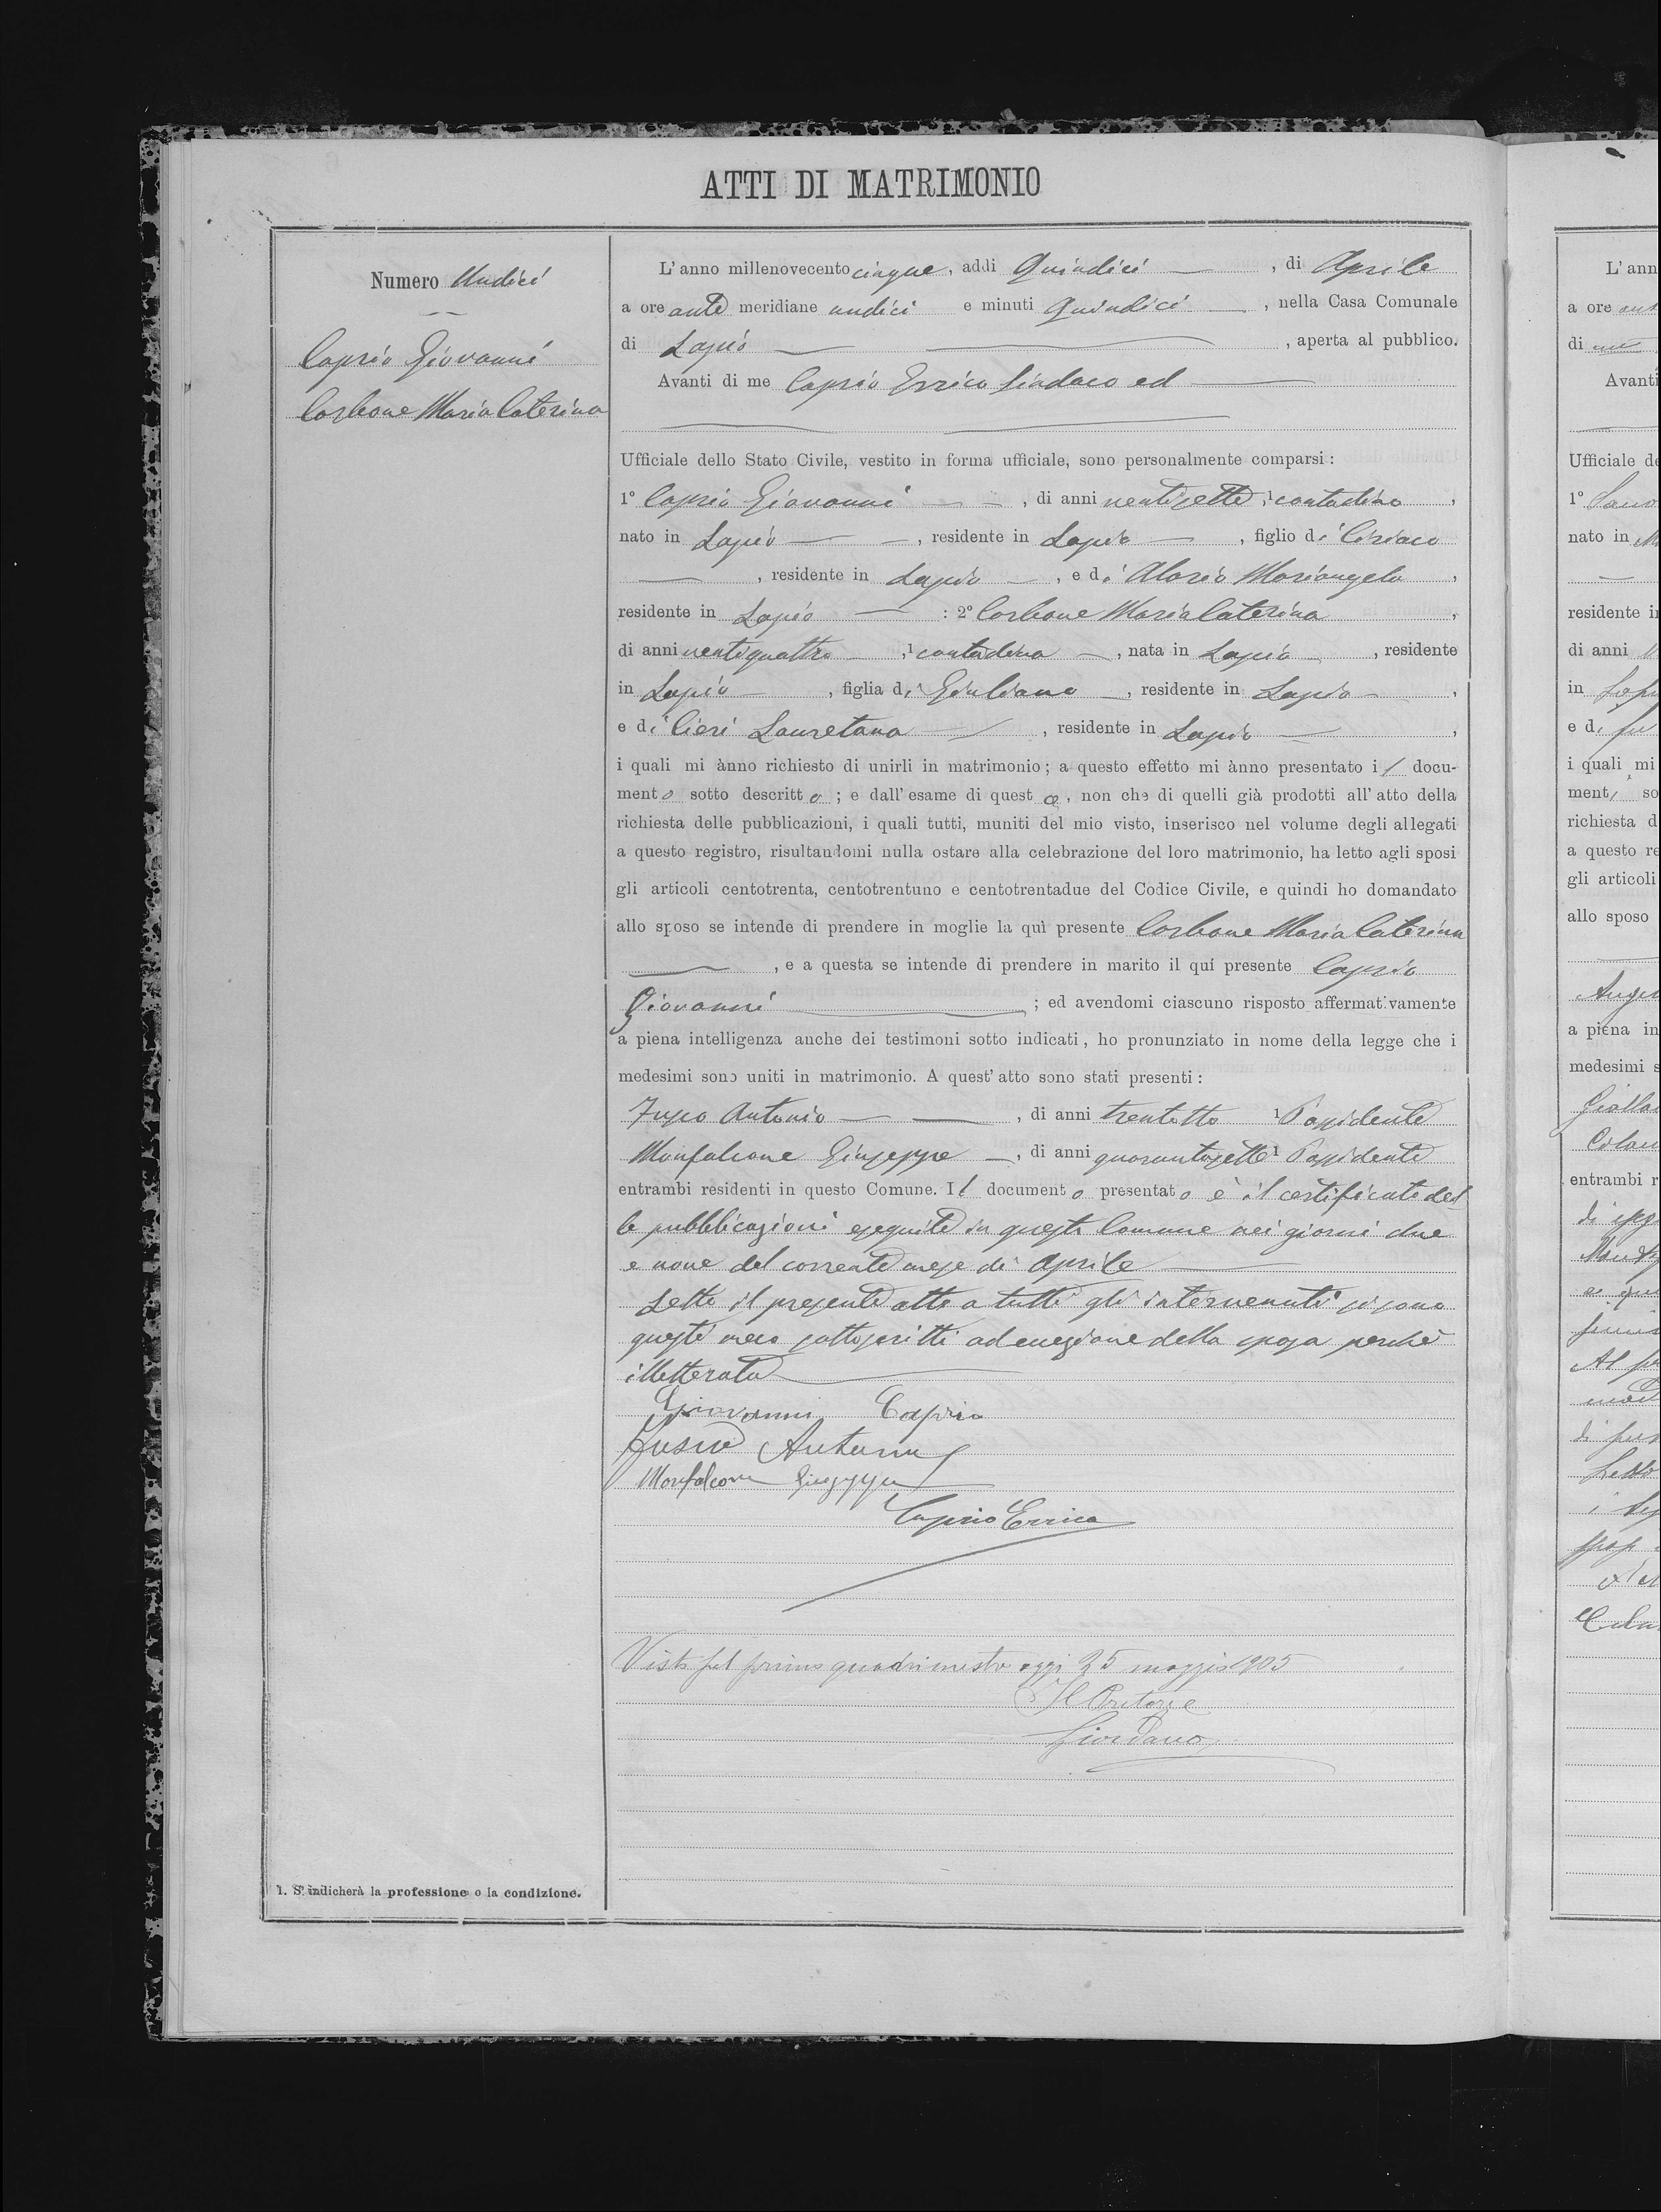 ATTI DI MATRIMONIO
Numero Undici
Caprio Giovanni
Carbone Maria Caterina
L'anno millenovecento cinque, addi Quindici, di Aprile
a ore ante meridiane undici e minuti Quindici, nella Casa Comunale
di Lapio, aperta al pubblico.
Avanti di me Caprio Errico Sindaco ed
Ufficiale dello Stato Civile, vestito in forma ufficiale, sono personalmente comparsi:
1° Caprio Giovanni, di anni ventisette, ¹ contadino,
nato in Lapio, residente in Lapio, figlio di Ciriaco
, residente in Lapio, e di Aloria Mariangela,
residente in Lapio: 2° Carbone Maria Caterina,
di anni ventiquattro, ¹ contadina, nata in Lapio, residente
in Lapio, figlia di Giuliano, residente in Lapio,
e di Cieri Lauretana, residente in Lapio,
i quali mi ànno richiesto di unirli in matrimonio; a questo effetto mi ànno presentato il docu-
mento sotto descritto; e dall'esame di questo, non che di quelli già prodotti all'atto della
richiesta delle pubblicazioni, i quali tutti, muniti del mio visto, inserisco nel volume degli allegati
a questo registro, risultandomi nulla ostare alla celebrazione del loro matrimonio, ha letto agli sposi
gli articoli centotrenta, centotrentuno e centotrentadue del Codice Civile, e quindi ho domandato
allo sposo se intende di prendere in moglie la quì presente Carbone Maria Caterina
, e a questa se intende di prendere in marito il quí presente Caprio
Giovanni; ed avendomi ciascuno risposto affermativamente
a piena intelligenza anche dei testimoni sotto indicati, ho pronunziato in nome della legge che i
medesimi sono uniti in matrimonio. A quest'atto sono stati presenti:
Antonio, di anni trentotto ¹ Possidente
Monfalcone Giuseppe, di anni quarantasette ¹ Possidente
entrambi residenti in questo Comune. Il documento presentato è il certificato del
le pubblicazioni eseguite in questo Comune nei giorni due
e nove del corrente mese di Aprile
Letto il presente atto a tutti gli intervenuti si sono
questi meco sottoscritti ad eccezione della sposa perchè
illetterata
Giovanni Caprio
Antonio
Monfalcone Giuseppe
Caprio Errico
Visto pel primo quadrimestre oggi 25 maggio 1905
Il Pretore
Giordano
1. S'indicherà la professione o la condizione.
L'ann
a ore ant
di
Avanti
Ufficiale de
1°
nato in
residente in
di anni
in
e di fu
i quali mi
ment so
richiesta d
a questo re
gli articoli
allo sposo
a piena in
medesimi s
entrambi r